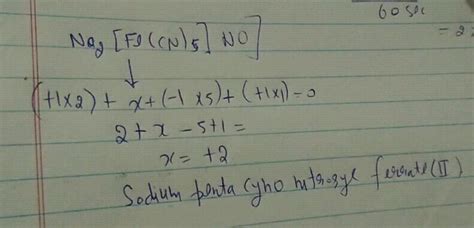 60 sec
= 2
Na2 [Fe(CN)5] NO]
↓
(+1x2) + x + (-1 x5) + (+1x1) = 0
2 + x - 5 + 1 =
x = +2
Sodium penta Cyno nitrosyl ferrate (II)